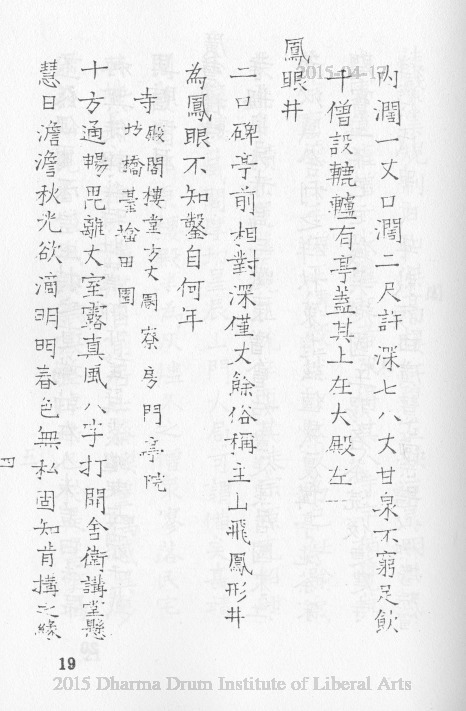 內濶一丈口濶二尺許深七八丈甘泉不窮足飲
千僧設轆轤有亭蓋其上在大殿左
鳳眼井
二口碑亭前相對深僅丈餘俗稱主山飛鳳形井
為鳳眼不知鑿自何年
寺殿閣樓堂方丈圊寮房門亭院
坊橋臺塔田園
十方通暢毘離大室露真風八字打開舍衛講堂懸
慧日澹澹秋光欲滴明明春色無私固知肯搆之緣
19
2015-04-17
2015 Dharma Drum Institute of Liberal Arts